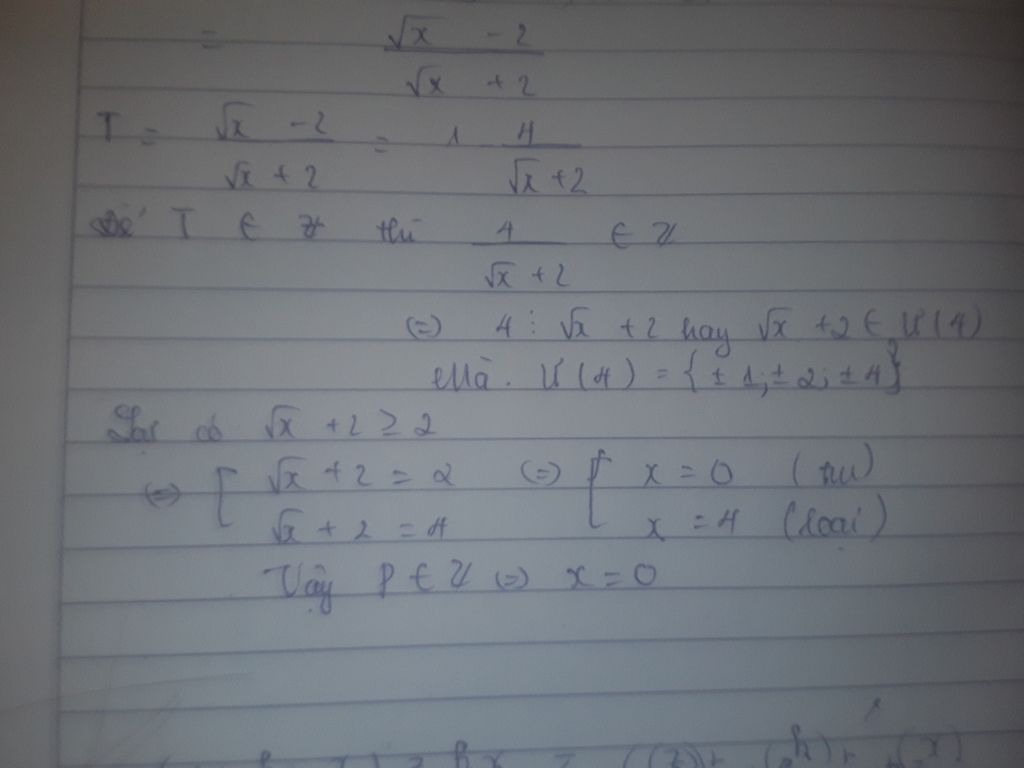 = (√x - 2)/(√x + 2)
T = (√x - 2)/(√x + 2) = 1 4/(√x + 2)
Để T ∈ Z thì 4/(√x + 2) ∈ Z
(=) 4 ⋮ √x + 2 hay √x + 2 ∈ Ư(4)
Mà. Ư(4) = {± 1; ± 2; ± 4}
Lại có √x + 2 ≥ 2
(=) [ √x + 2 = 2 (=) [ x = 0 (TM)
√x + 2 = 4 x = 4 (loại)
Vậy P ∈ Z (=) x = 0